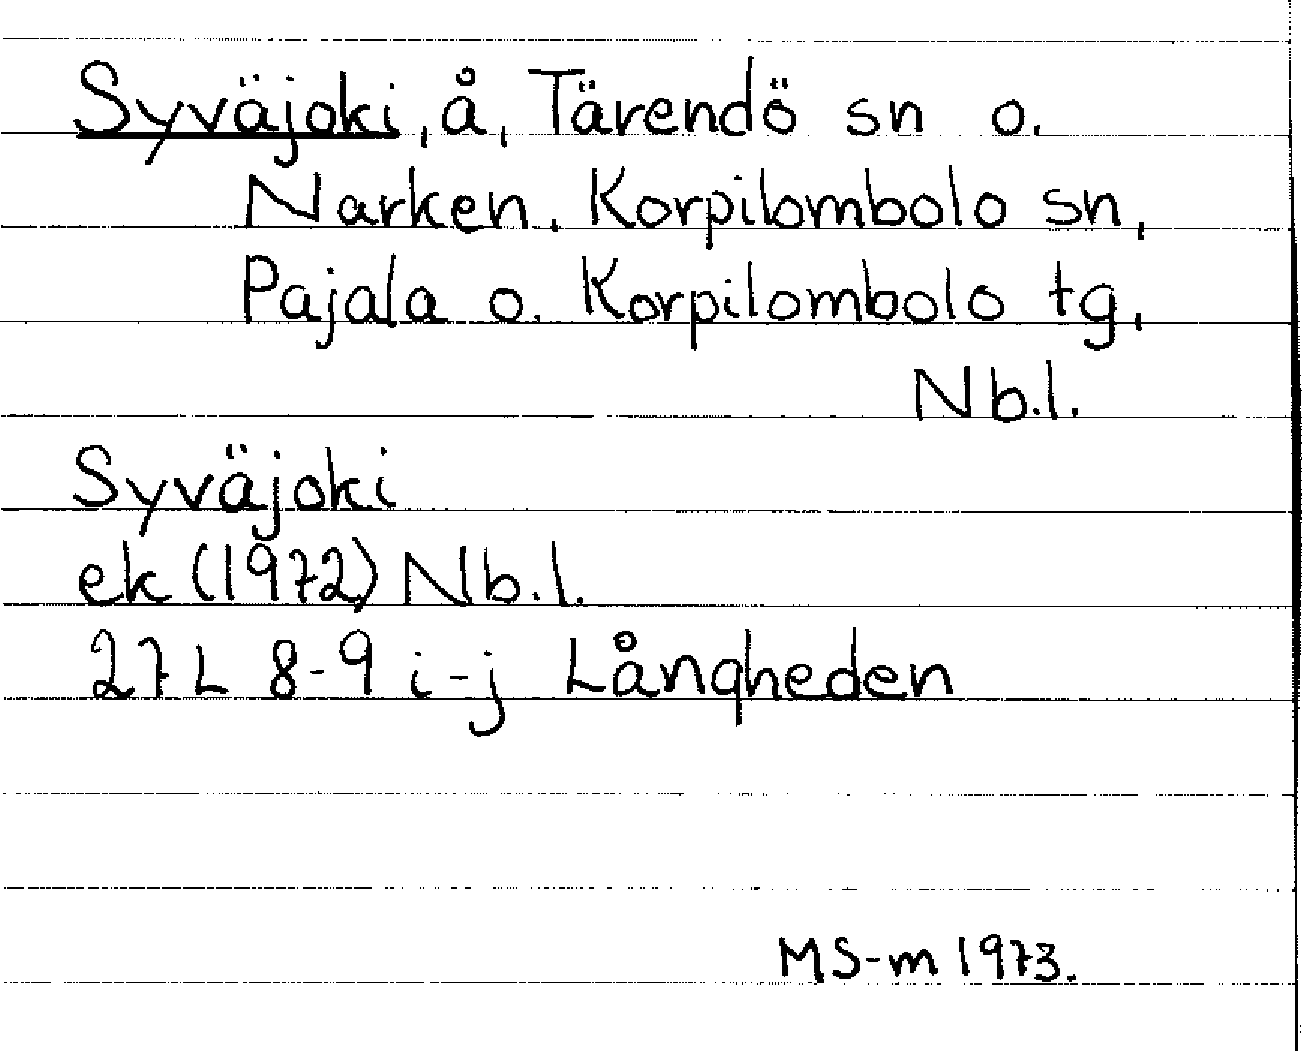 Syväjoki, å, Tärendö sn o.
Narken, Korpilombolo sn,
Pajala o. Korpilombolo tg,
Nb.l.
Syväjoki
ek (1972) Nb.l.
27 L 8-9 i-j Långheden
MS-m 1973.